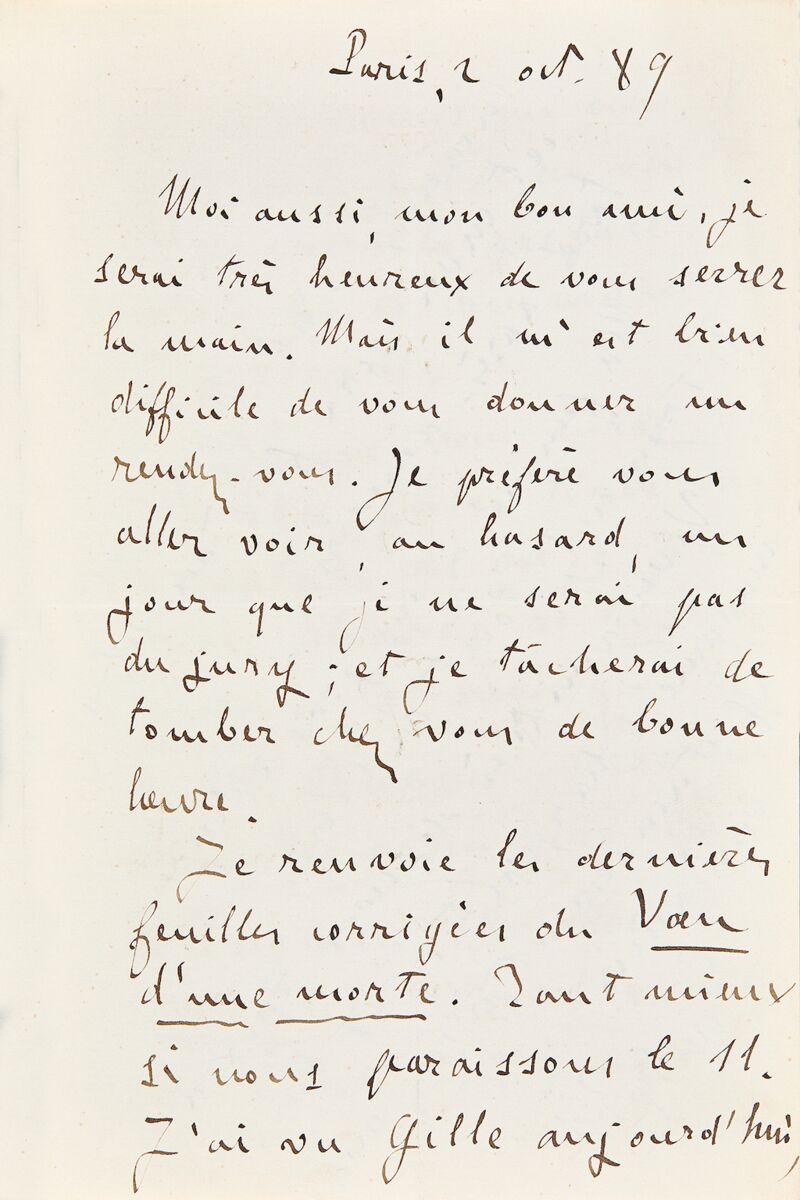 Paris, 2 oct. 89
Moi aussi, mon bon ami, je
serai très heureux de vous serrer
la main. Mais il m'est bien
difficile de vous donner un
rendez-vous. Je préfère vous
aller voir, au hasard, un
jour que je ne serai pas
du jury ; et je tâcherai de
tomber chez vous de bonne
heure.
Je renvoie les dernières
feuilles corrigées du Vœu
d'une morte. Tant mieux
si nous paraissons le 11.
J'ai vu Gille aujourd'hui,